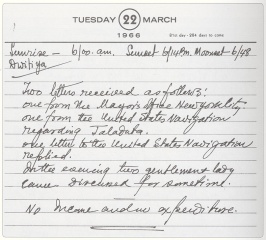 TUESDAY 22 MARCH
1966
81st day - 284 days to come
Sunrise - 6/00 am. Sunset 6/14 Pm. Moonset - 6/48
Dwitiya
Two letters received as follows:
one from the Mayor's office New York City
one from the United States Navigation
regarding Jaladuta.
one letter to the United States Navigation
replied.
In the evening two gentlemen & lady
came discussed for sometime.
No Income and no expenditure.